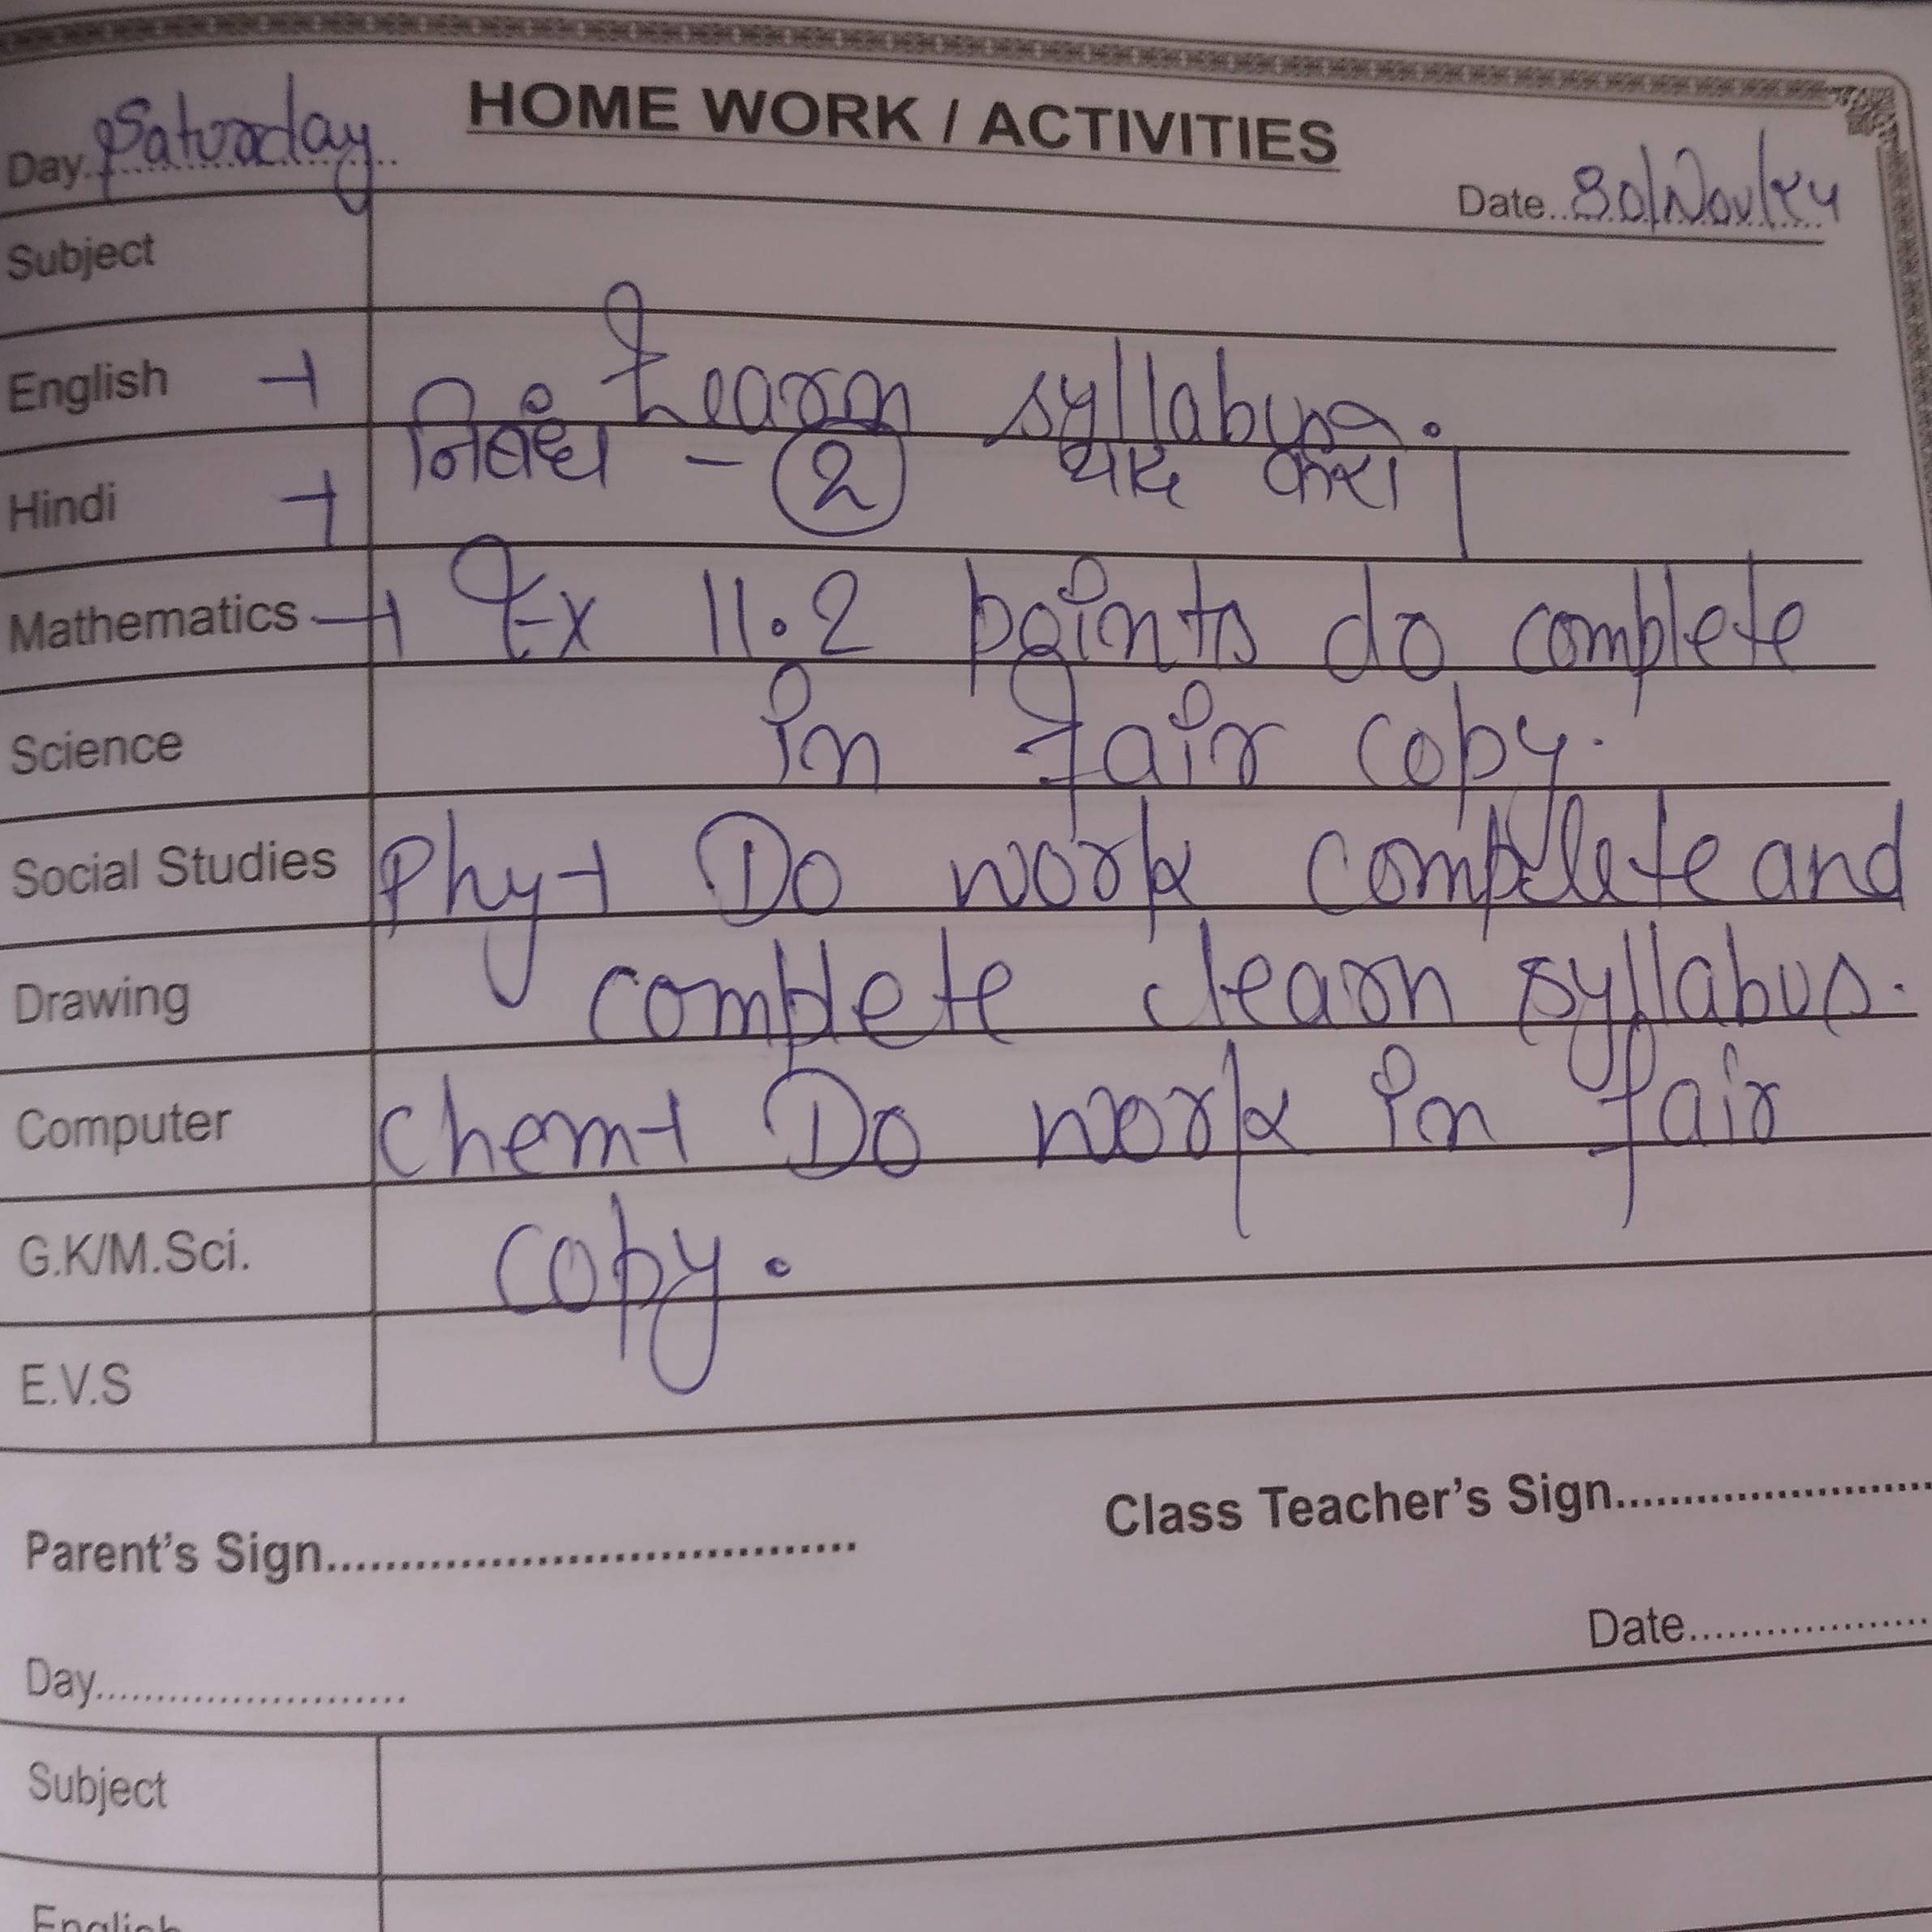 HOME WORK / ACTIVITIES
Day. Saturday
Date.. 30/Nov/24
Subject
English → Learn syllabus.
Hindi → निबंध - 2 याद करो।
Mathematics → Ex 11.2 points do complete
Science in fair copy.
Social Studies Phy → Do work complete and
Drawing complete learn syllabus.
Computer Chem → Do work in fair
G.K/M.Sci. copy.
E.V.S
Parent's Sign
Class Teacher's Sign
Day
Date
Subject
English